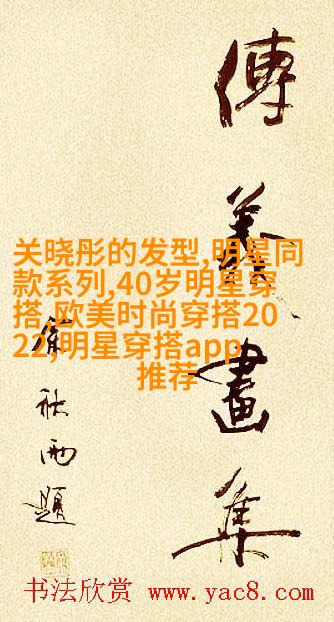 关晓彤的发型,明星同
款系列,40岁明星穿
搭,欧美时尚穿搭20
22,明星穿搭app
推荐
畫集
題
书法欣赏 www.yac8.com